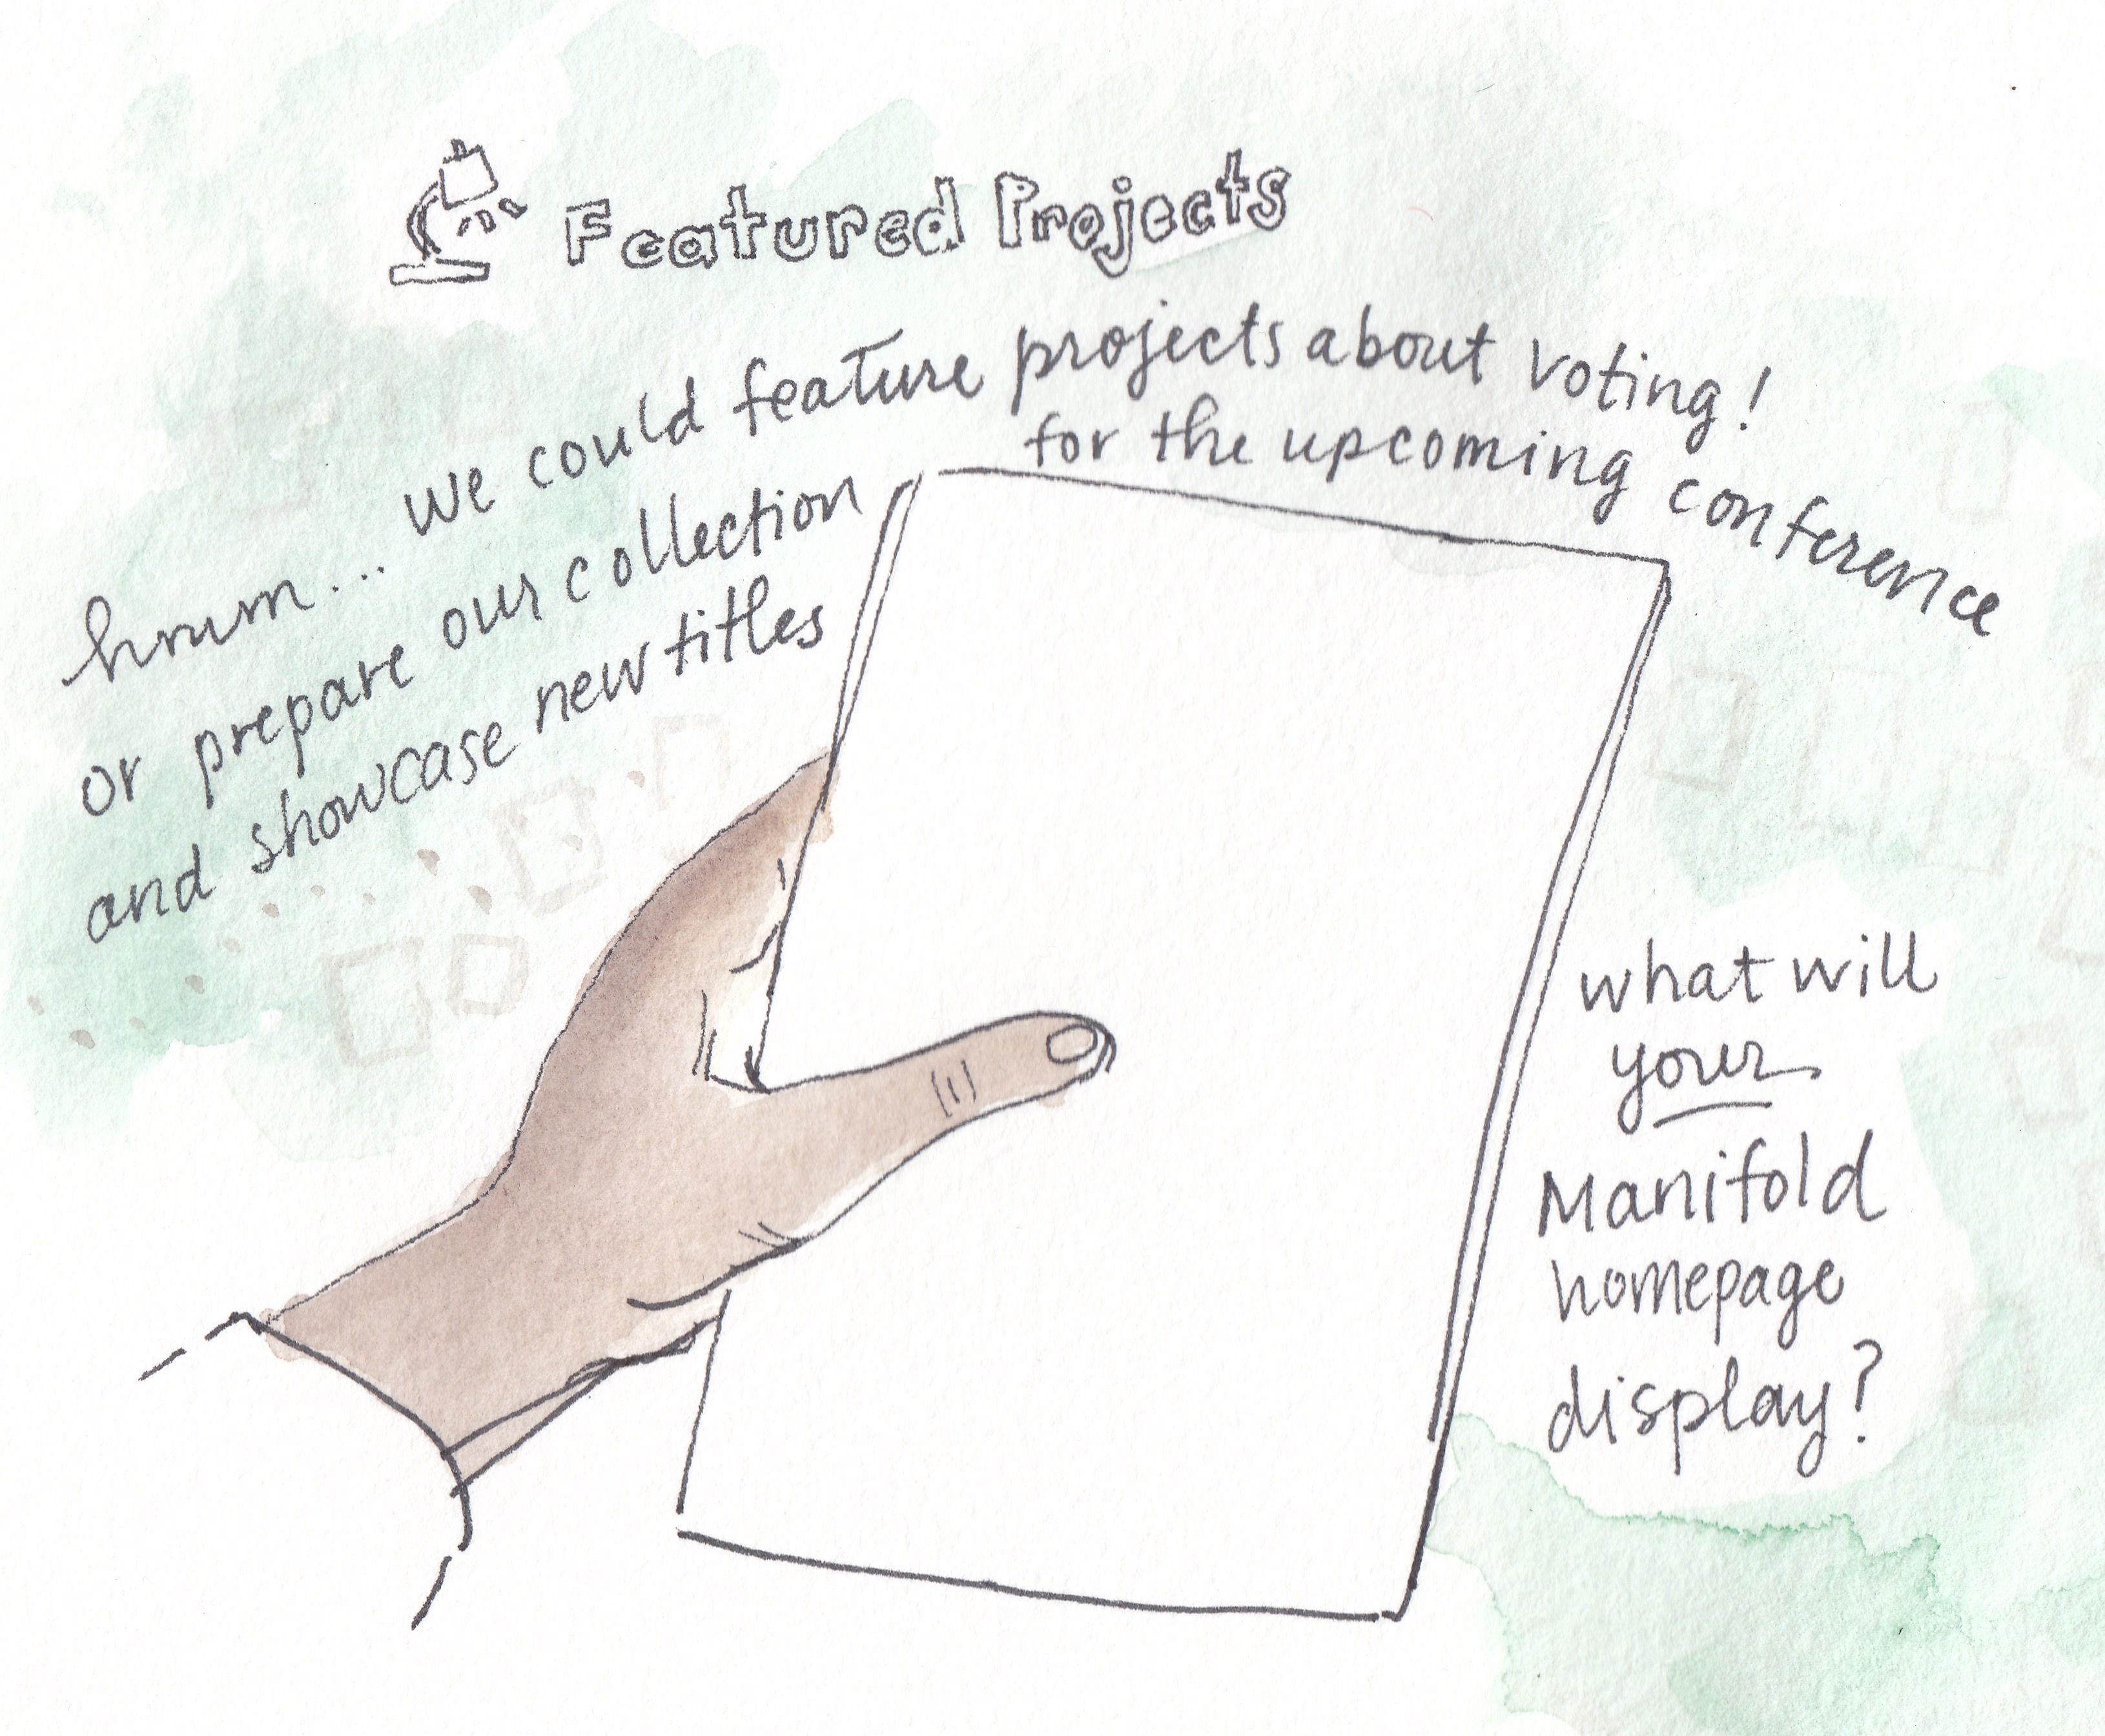 Featured Projects
hmm... we could feature projects about voting!
or prepare our collection for the upcoming conference
and showcase new titles
what will
your
Manifold
homepage
display?